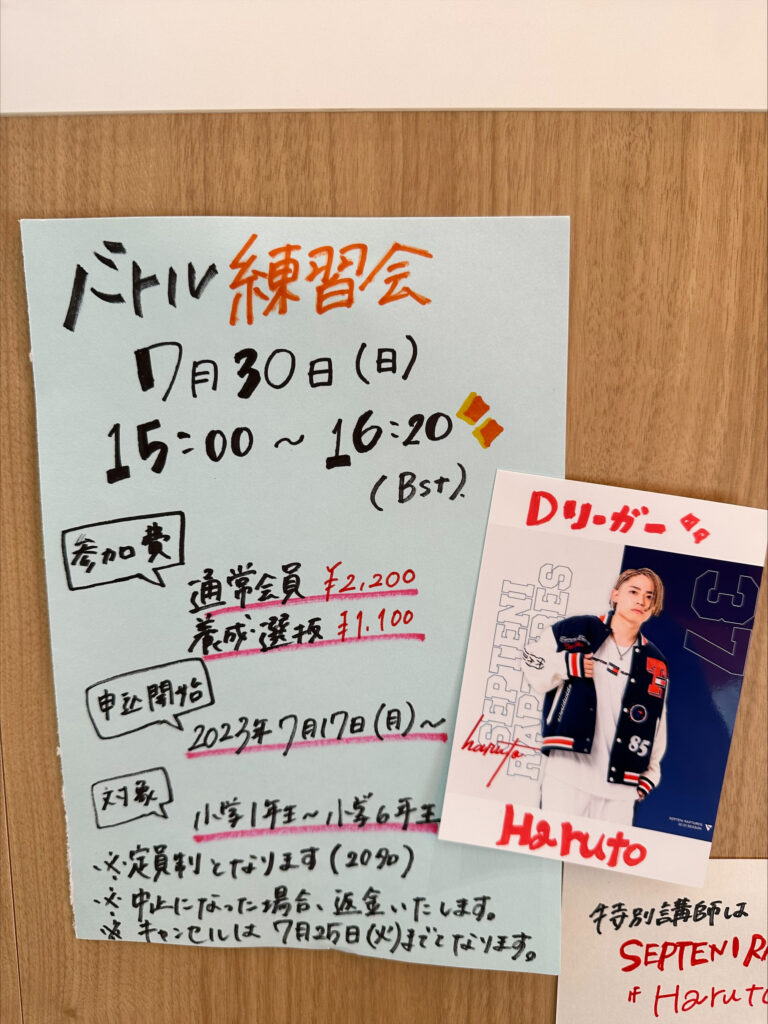 バトル練習会
7月30日(日)
15:00~16:20
(Bst).
参加費
通常会員 ¥2,200
養成・選抜 ¥1,100
申込開始
2023年7月17日(月)~
対象
小学1年生~小学6年生
※定員制となります(20名)
※中止になった場合、返金いたします。
※キャンセルは 7月25日(火)までとなります。
Dリーガー
SEPTENI
RAPTURES
37
85
haruto
Haruto
特別講師は
SEPTENI RA
Haruto